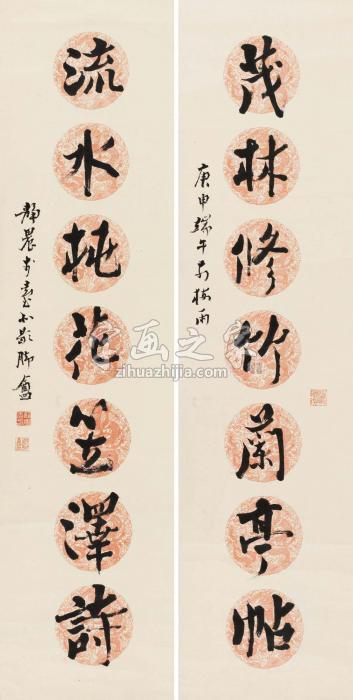 茂林修竹蘭亭帖
庚申端午前梅雨
流水桃花笠澤詩
靜農於臺北龍坡
字画之家
zihuazhijia.com